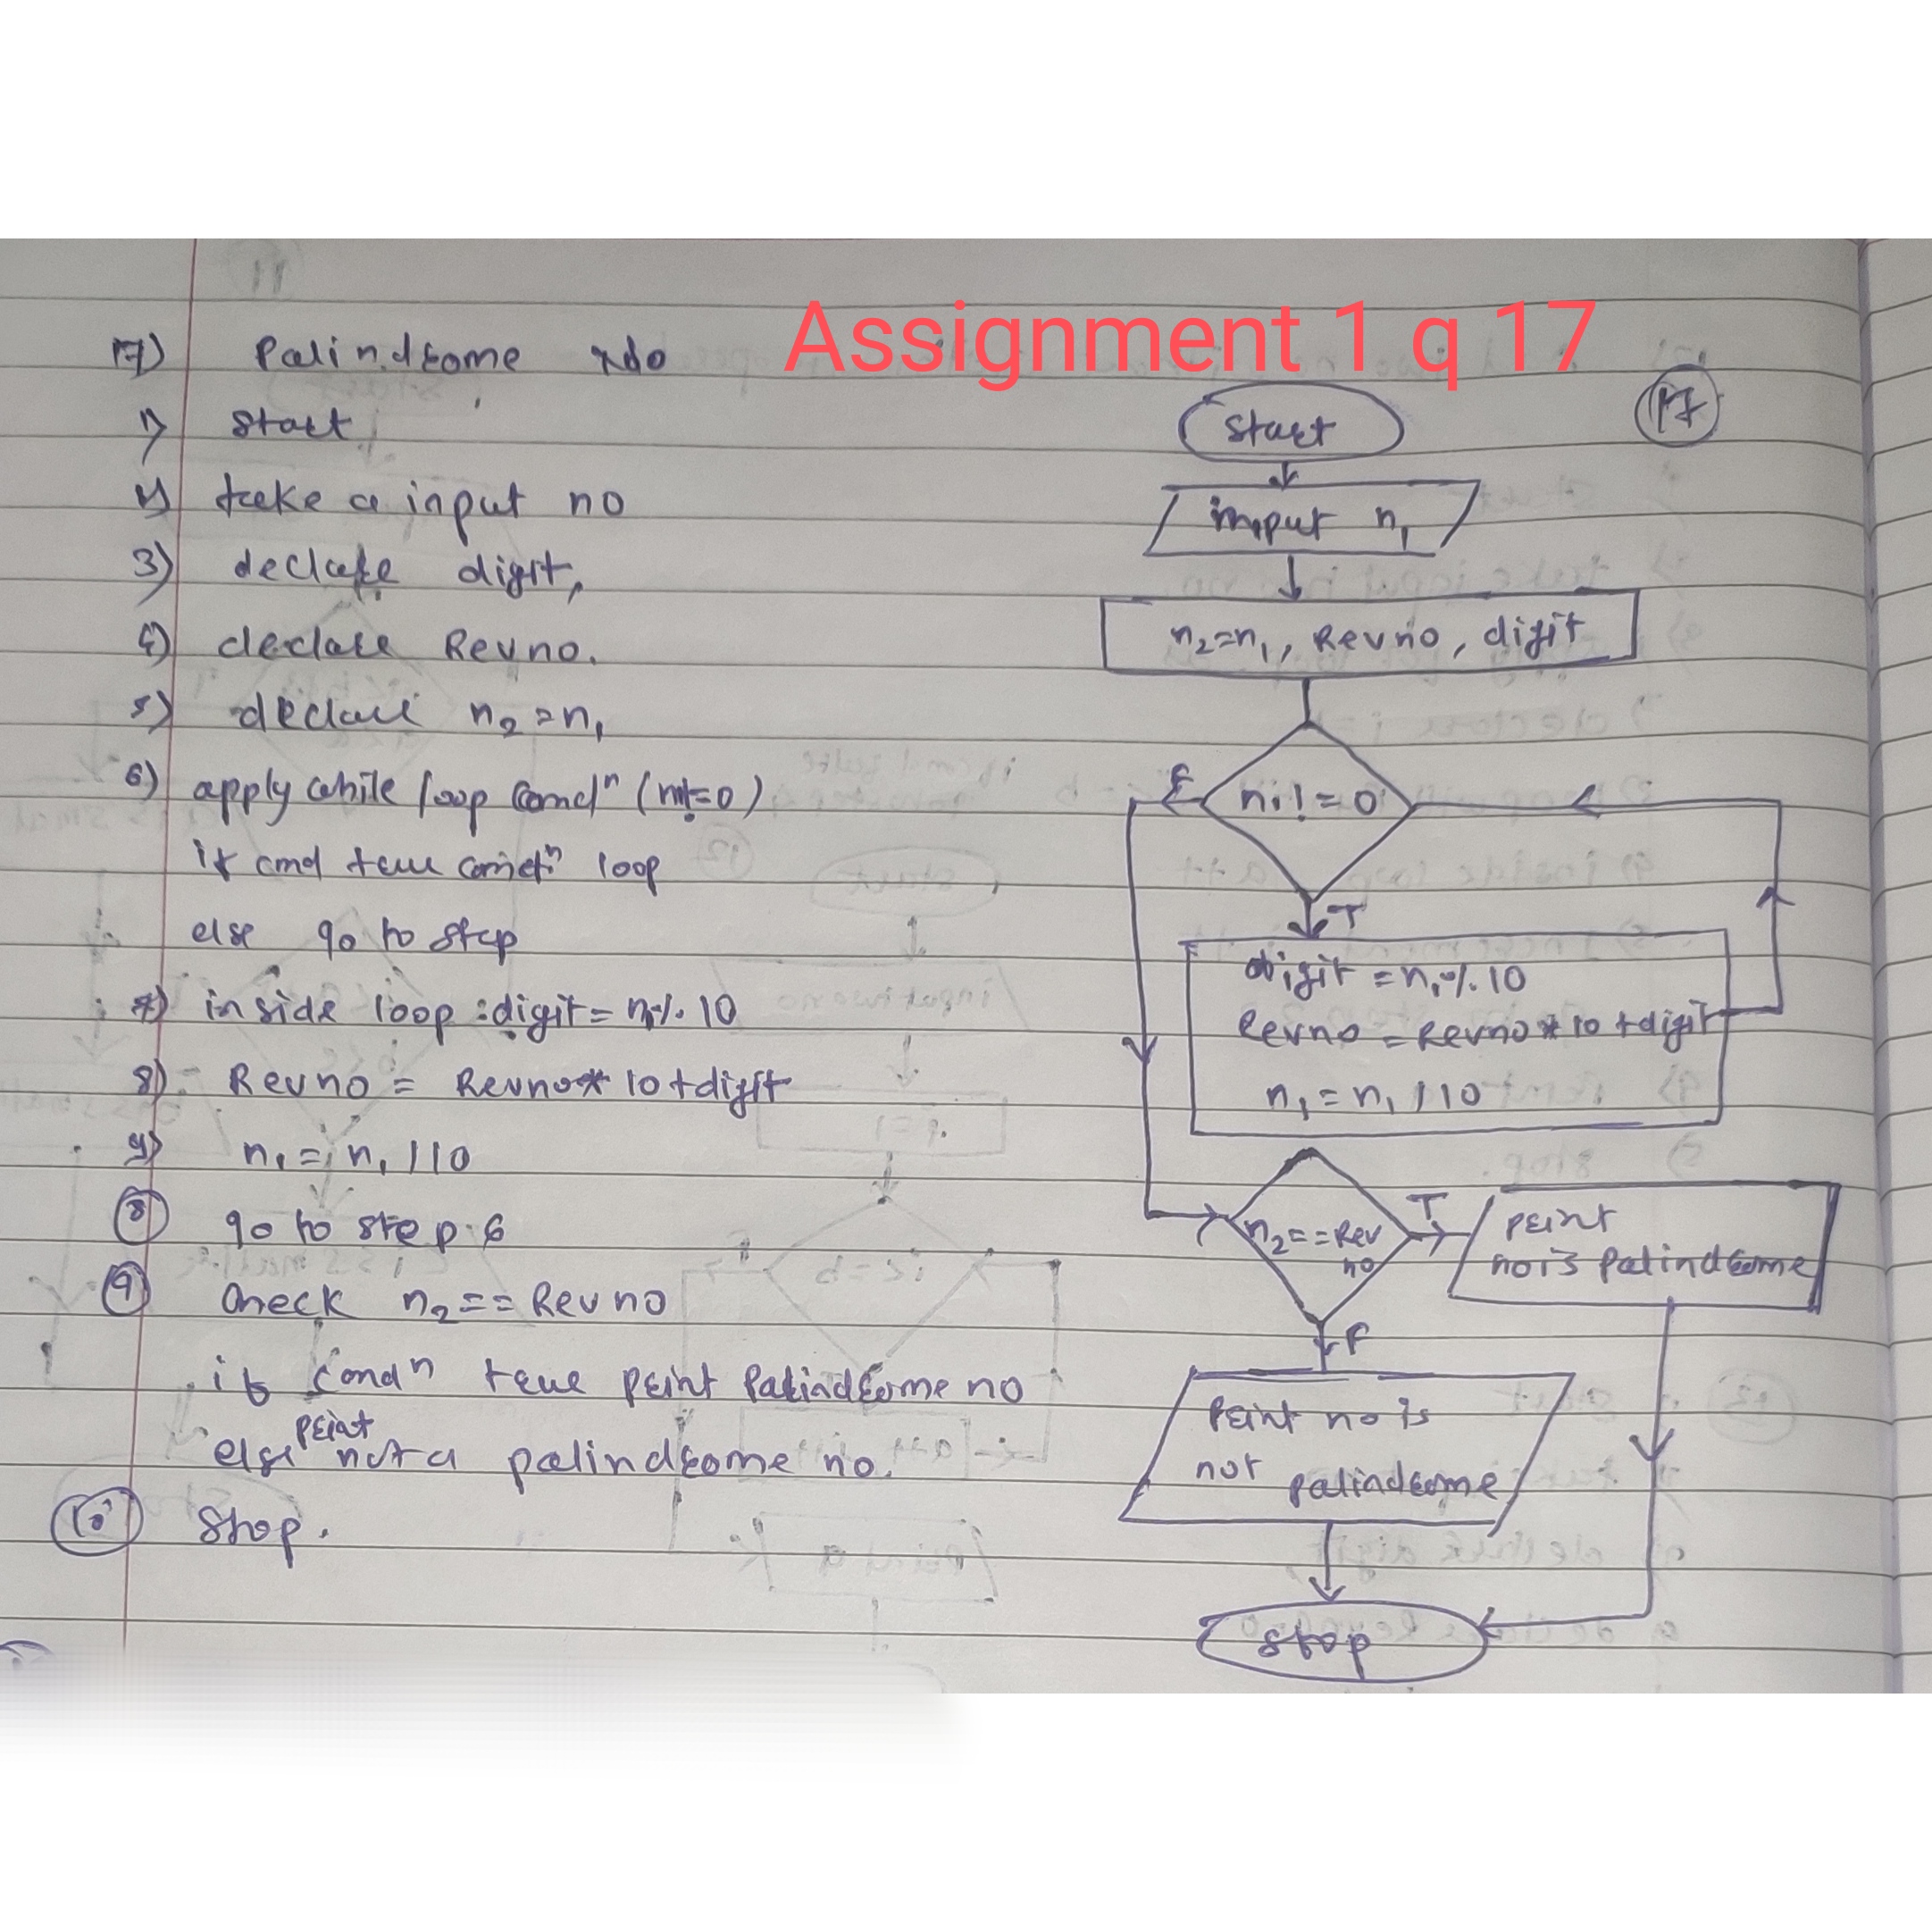 Assignment 1 q 17
17) Palindrome No
1) Start
2) take a input no
3) declare digit,
4) declare Revno.
5) declare n2=n1
6) apply while loop Condn (n1!=0)
if cond true loop
else go to step
7) inside loop : digit = n1% 10
8) Revno = Revno* 10+digit
9) n1 = n1 / 10
8 go to step 6
9 Check n2 == Revno
if Condn true print Palindrome no
else print not a palindrome no.
10 Stop.
17
Start
input n1
n2=n1, Revno, digit
n1!=0
F
T
digit = n1% 10
Revno = Revno* 10 +digit
n1 = n1 / 10
n2==Rev
no
T
print
no is Palindrome
F
Print no is
not palindrome
Stop